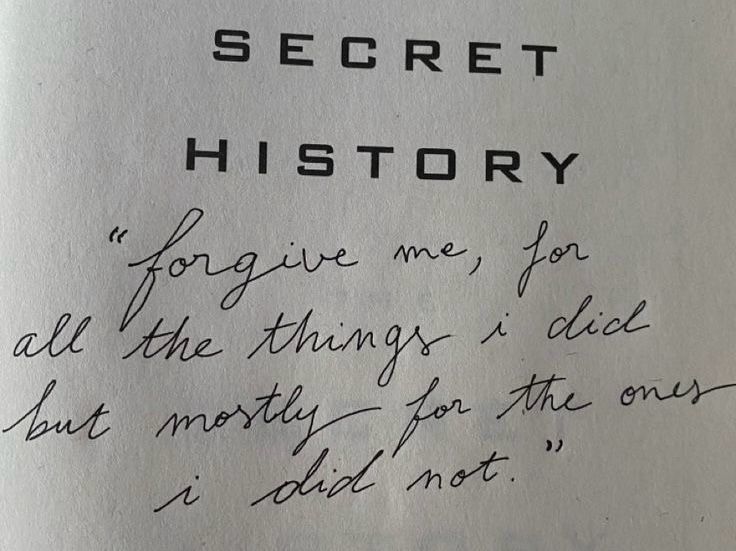 SECRET
HISTORY
"forgive me, for
all the things i did
but mostly for the ones
i did not."